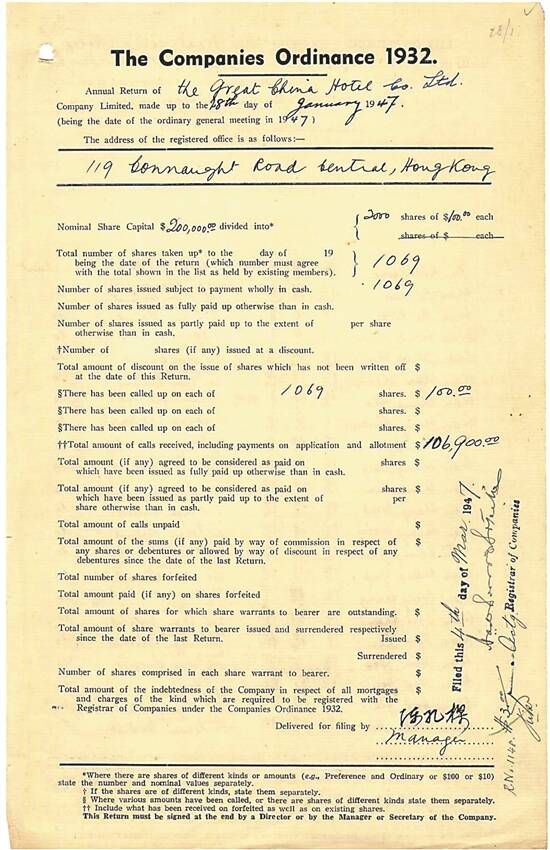 28/1
The Companies Ordinance 1932.
Annual Return of the Great China Hotel Co. Ltd.
Company Limited, made up to the 28th day of January 1947.
(being the date of the ordinary general meeting in 1947)
The address of the registered office is as follows:—
119 Connaught Road Central, Hong Kong
Nominal Share Capital $200,000.00 divided into* { 2000 shares of $100.00 each
shares of $ each
Total number of shares taken up* to the day of 19
being the date of the return (which number must agree
with the total shown in the list as held by existing members). } 1069
Number of shares issued subject to payment wholly in cash. 1069
Number of shares issued as fully paid up otherwise than in cash.
Number of shares issued as partly paid up to the extent of per share
otherwise than in cash.
†Number of shares (if any) issued at a discount.
Total amount of discount on the issue of shares which has not been written off $
at the date of this Return.
§There has been called up on each of 1069 shares. $ 100.00
§There has been called up on each of shares. $
§There has been called up on each of shares. $
††Total amount of calls received, including payments on application and allotment $ 106,900.00
Total amount (if any) agreed to be considered as paid on shares $
which have been issued as fully paid up otherwise than in cash.
Total amount (if any) agreed to be considered as paid on shares $
which have been issued as partly paid up to the extent of per
share otherwise than in cash.
Total amount of calls unpaid $
Total amount of the sums (if any) paid by way of commission in respect of $
any shares or debentures or allowed by way of discount in respect of any
debentures since the date of the last Return.
Total number of shares forfeited
Total amount paid (if any) on shares forfeited $
Total amount of shares for which share warrants to bearer are outstanding. $
Total amount of share warrants to bearer issued and surrendered respectively
since the date of the last Return. Issued $
Surrendered $
Number of shares comprised in each share warrant to bearer. $
Total amount of the indebtedness of the Company in respect of all mortgages $
and charges of the kind which are required to be registered with the
Registrar of Companies under the Companies Ordinance 1932.
Delivered for filing by
Manager
Filed this 4th day of Mar. 1947.
Actg. Registrar of Companies
*Where there are shares of different kinds or amounts (e.g., Preference and Ordinary or $100 or $10)
state the number and nominal values separately.
† If the shares are of different kinds, state them separately.
§ Where various amounts have been called, or there are shares of different kinds state them separately.
†† Include what has been received on forfeited as well as on existing shares.
This Return must be signed at the end by a Director or by the Manager or Secretary of the Company.